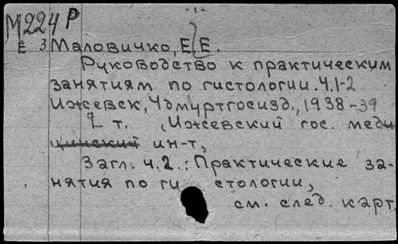 М224 Р
Е 3 Маловичко, Е.Е.
Руководство к практическим
занятиям по гистологии. Ч.1-2
Ижевск, Удмуртгосизд., 1938-39
2 т. (Ижевский гос. меди
цинский ин-т,
Загл. ч.2.: Практические за-
нятия по ги стологии,
см. след. карт.